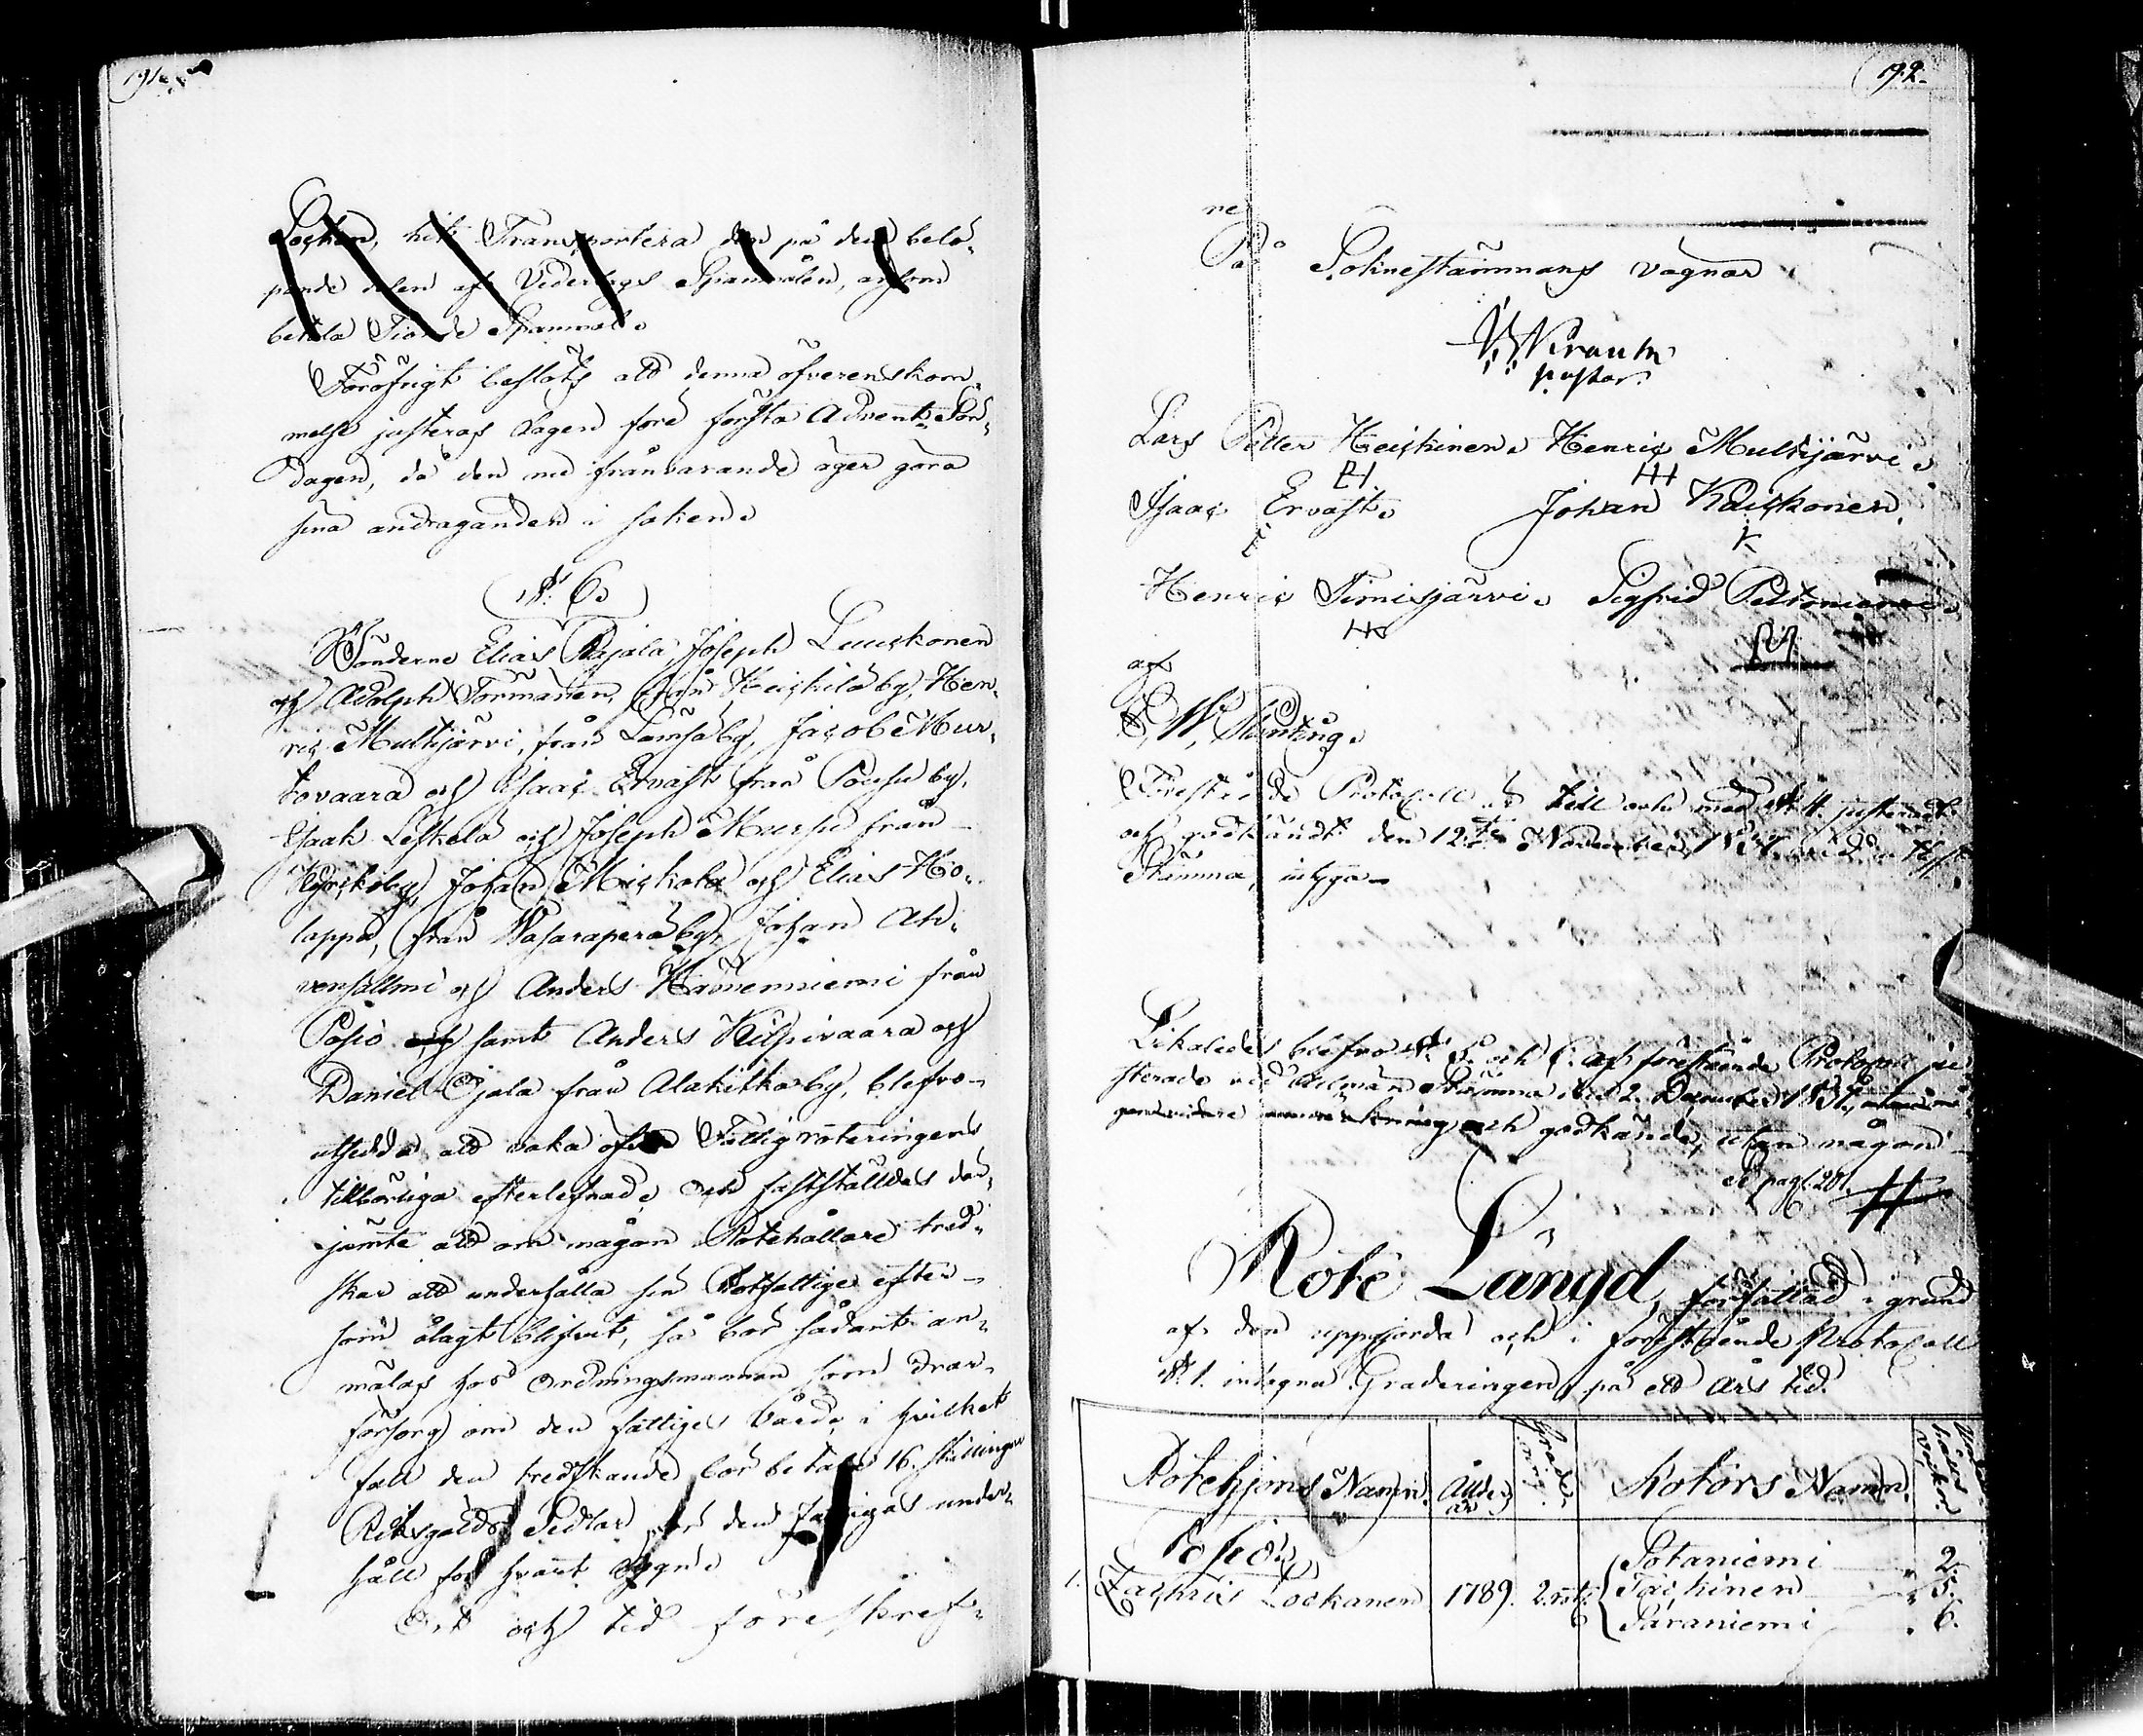 191.
Socken, hit Transportera den på den belö-
pande delen af Vederlags Spanmålen, ansom
betala Tionde Spanmål.
Föröfrigt beslöts att denna öfverenskom-
melse justeras dagen före första Advents Sön-
dagen, då den nu frånvarande äger göra
sina andraganden i saken.
§. 6.
Bönderne Elias Rajala, Joseph Luuskonen
och Adolph Törmänen, från Heiskilä by, Hen-
ric Mulkijärvi, från Lämsä by, Jacob Mur-
tovaara och Isaac Ervast från Poussu by,
Esaak Leskelä och Joseph Mursu från
Kurski by, Johan Miskola och Elias Ho-
lappa, från Wasaraperä by, Johan Ah-
vensallmi och Anders Hänninniemi från
Posio och samt Anders Kilpivaara och
Daniel Ojala från Alakitka by, blefvo
utsedda att vaka öfver Fattigroteringens
tillbörliga efterlefnad, och fastställdes der-
jämte att om någon Rotehållare tred-
skar att underhålla sin Rotfattige efter-
som ålagt blifvit, så bör sådant an-
mälas hos Ordningsmannen som drar
försorg om den fattiges vård, i hvilket
fall den tredskande bör betala 16. skillingar
Riksgälds Sedlar för den fattigas under-
håll för hvart dygn.
Ort och tid föreskref-
192.
ne
På Söknestämmans vägnar
Wirauth
pastor.
Lars Petter Heiskinen. Henric Mulkijärvi.
PH. HH
Isaac Ervast. Johan Kaiskonen.
E K
Henric Timisjärvi. Sigfrid Peltoniemi.
HS
af
Förestående Protocoll är till och med § 4. justeradt
och godkändt den 12te November
Stämma, intyga
Likaledes blefvo §. 5 och 6. af förestående Protocoll ju-
sterade vid Allmän Stämma den 2. December 1831,
och godkände, utan någon
Se pag. 201.
Rote Längd, författad i grund
af den uppgjorda och i förestående Protocoll
§. 1. intagna Graderingen, på ett års tid.
Rotehjons Namn. Ålder år. Grade- ring. Rotörs Namn. Under- hålls veckor
Posio
1. Zachris Lockanen 1789. 2. rot. Potaniemi 2.
Tackinen 5.
Päraniemi 6.